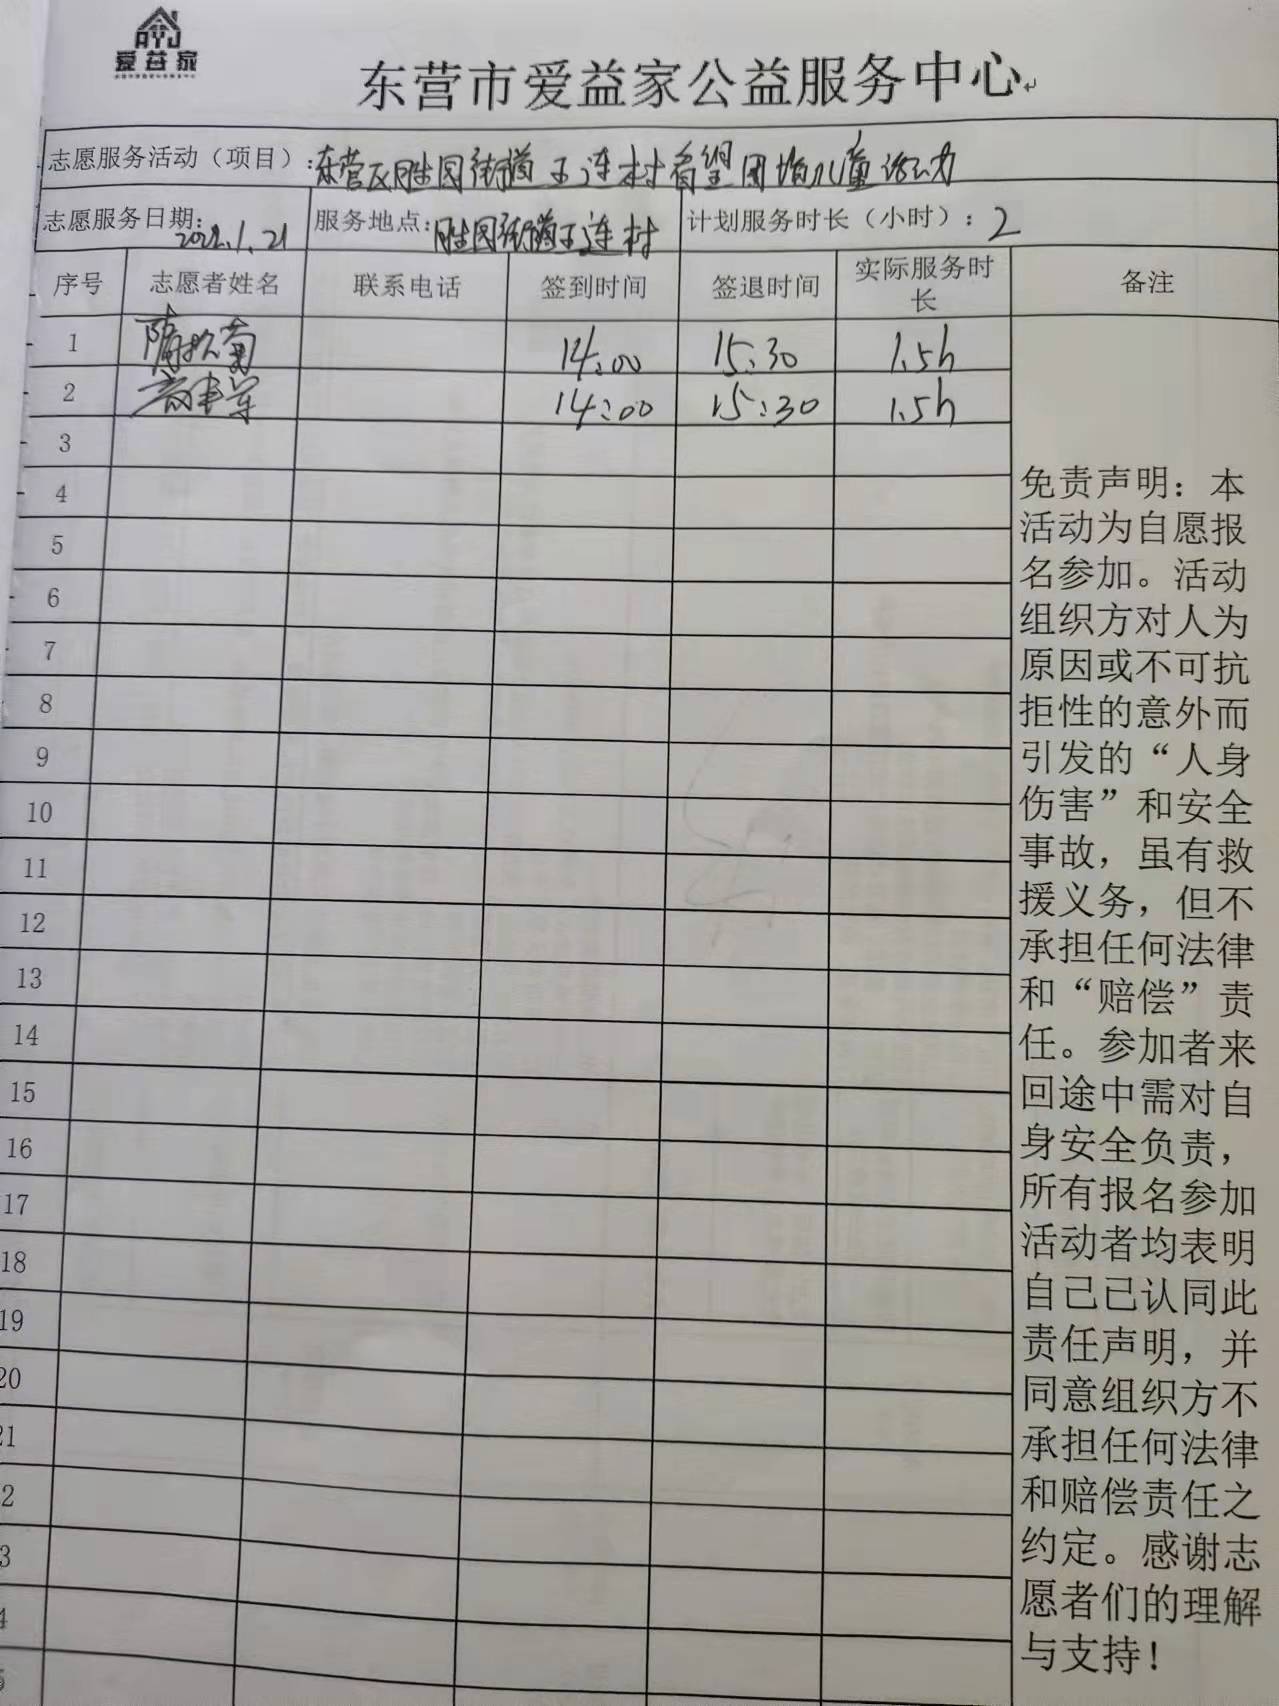 AYJ
爱益家
东营市爱益家公益服务中心
志愿服务活动（项目）：东营区胜园街道王连村看望困境儿童活动
志愿服务日期：2022.1.21 服务地点：胜园街道王连村 计划服务时长（小时）：2
序号 志愿者姓名 联系电话 签到时间 签退时间 实际服务时长 备注
1 14:00 15:30 1.5h
2 14:00 15:30 1.5h
3
4
5
6
7
8
9
10
11
12
13
14
15
16
17
18
19
20
21
2
3
4
5
免责声明：本
活动为自愿报
名参加。活动
组织方对人为
原因或不可抗
拒性的意外而
引发的“人身
伤害”和安全
事故，虽有救
援义务，但不
承担任何法律
和“赔偿”责
任。参加者来
回途中需对自
身安全负责，
所有报名参加
活动者均表明
自己已认同此
责任声明，并
同意组织方不
承担任何法律
和赔偿责任之
约定。感谢志
愿者们的理解
与支持！